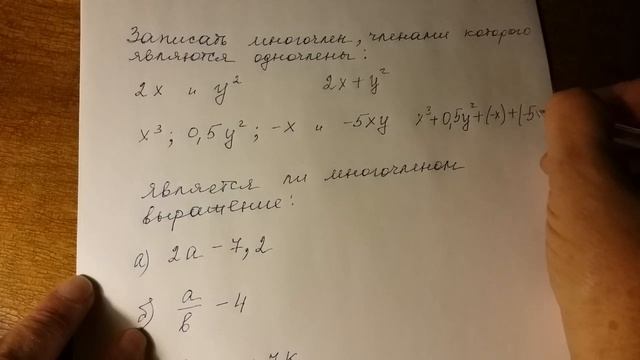 Записать многочлен, членами которого
являются одночлены:
2x и y² 2x + y²
x³; 0,5y²; -x и -5xy x³+0,5y²+(-x)+(-5x
является ли многочленом
выражение:
а) 2a - 7,2
б) a/b - 4
7k